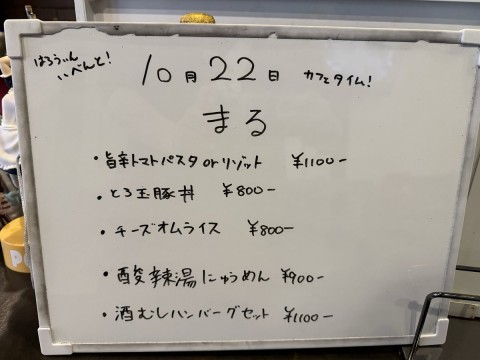 はろうぃん
いべんと!
10月22日 カフェタイム!
まる
・旨辛トマトパスタorリゾット ¥1100-
・とろ玉豚丼 ¥800-
・チーズオムライス ¥800-
・酸辣湯にゅうめん ¥900-
・酒むしハンバーグセット ¥1100-